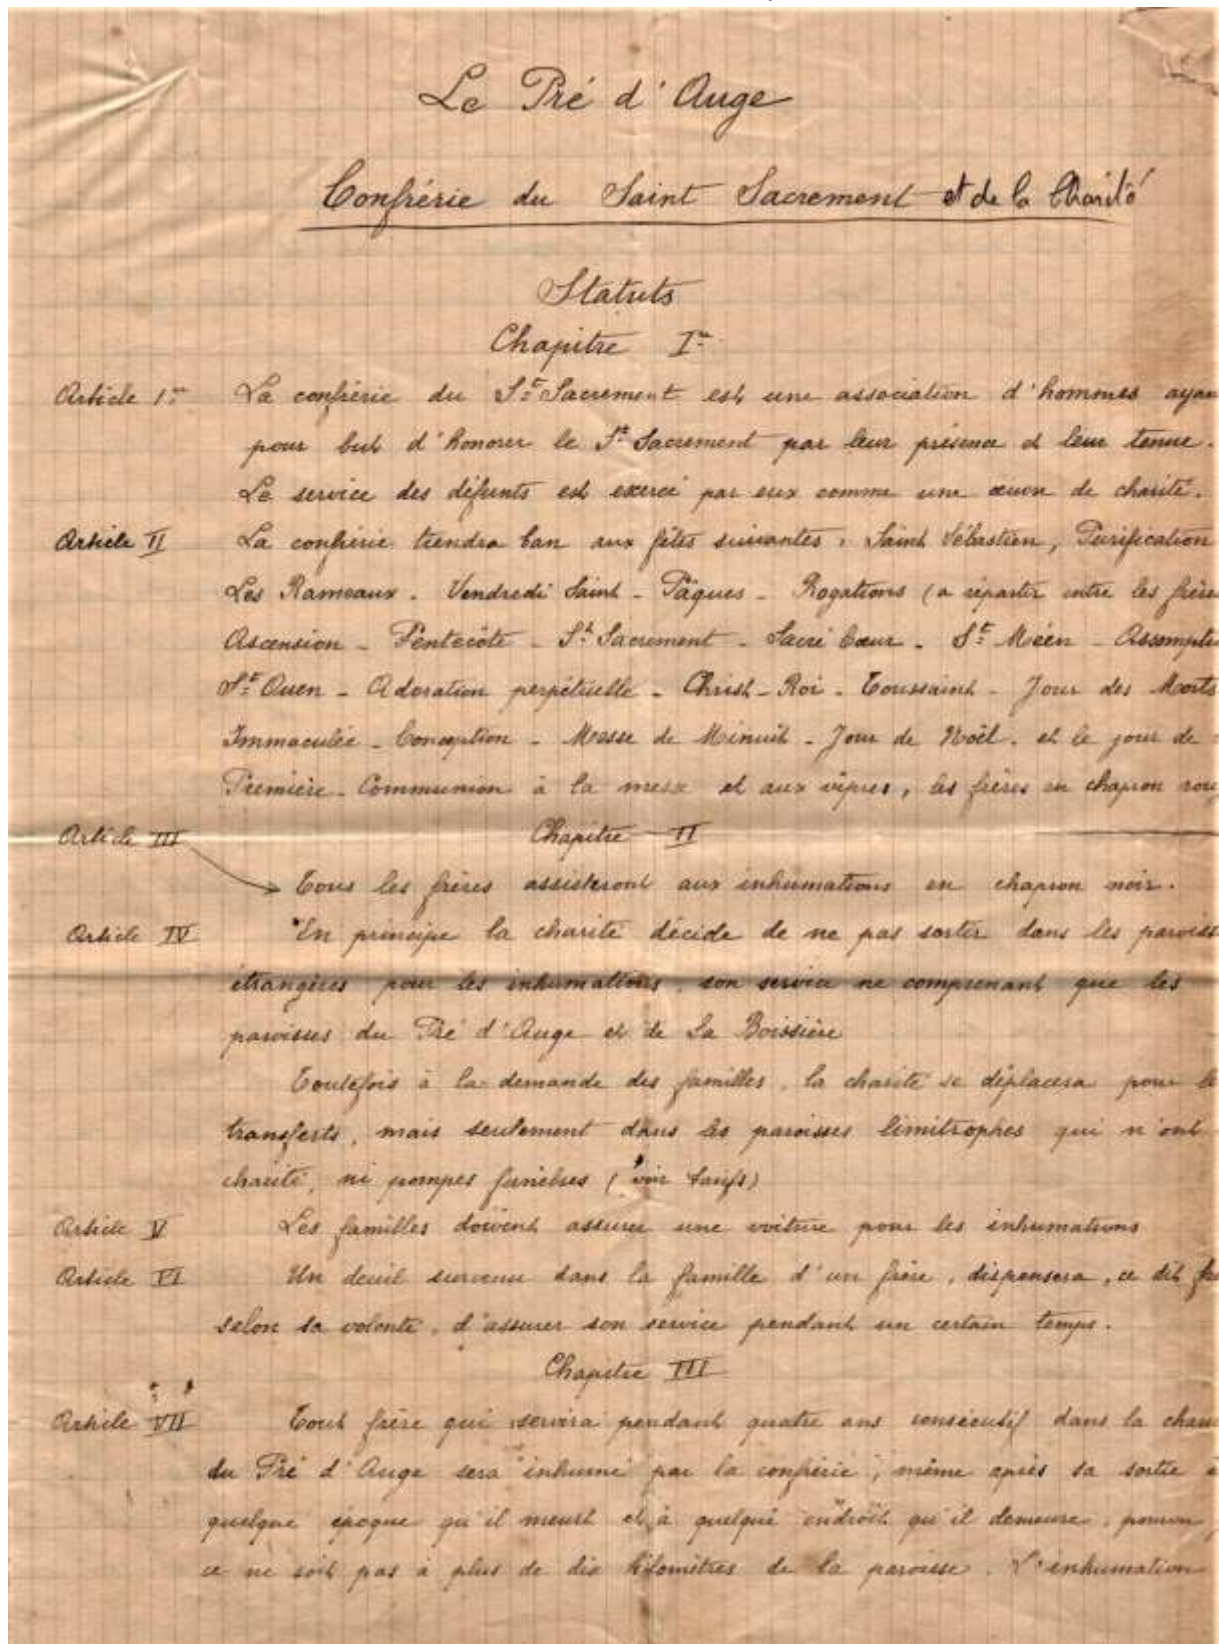 Le Pré d'Auge
Confrérie du Saint Sacrement et de la Charité
Statuts
Chapitre Ier
Article 1er La confrérie du St Sacrement est une association d'hommes ayan
pour but d'honorer le St Sacrement par leur présence et leur tenue.
Le service des défunts est exercé par eux comme une œuvre de charité.
Article II La confrérie tiendra ban aux fêtes suivantes, Saint Sébastien, Purification
Les Rameaux - Vendredi Saint - Pâques - Rogations (a répartir entre les frère
Ascension - Pentecôte - St Sacrement - Sacré Cœur - St Méen - Assompti
St Ouen - Adoration perpétuelle - Christ-Roi - Toussaint - Jour des Morts
Immaculée - Conception - Messe de Minuit - Jour de Noël. et le jour de
Première - Communion à la messe et aux vêpres, les frères en chapron rou
Article III Chapitre II
Tous les frères assisteront aux inhumations en chapron noir.
Article IV En principe la charité décide de ne pas sortir dans les paroiss
étrangères pour les inhumations, son service ne comprenant que les
paroisses du Pré d'Auge et de La Boissière
Toutefois à la demande des familles, la charité se déplacera pour le
transferts, mais seulement dans les paroisses limitrophes qui n'ont
charité, ni pompes funèbres (voir tarifs)
Article V Les familles doivent assurer une voiture pour les inhumations
Article VI Un deuil survenu dans la famille d'un frère, dispensera, ce dit fr
selon sa volonté, d'assurer son service pendant un certain temps.
Chapitre III
Article VII Tout frère qui servira pendant quatre ans consécutif dans la char
du Pré d'Auge sera inhumé par la confrérie, même après sa sortie à
quelque époque qu'il meurt et à quelque endroit qu'il demeure, pourvu
ce ne soit pas à plus de dix kilomètres de la paroisse. L'inhumation